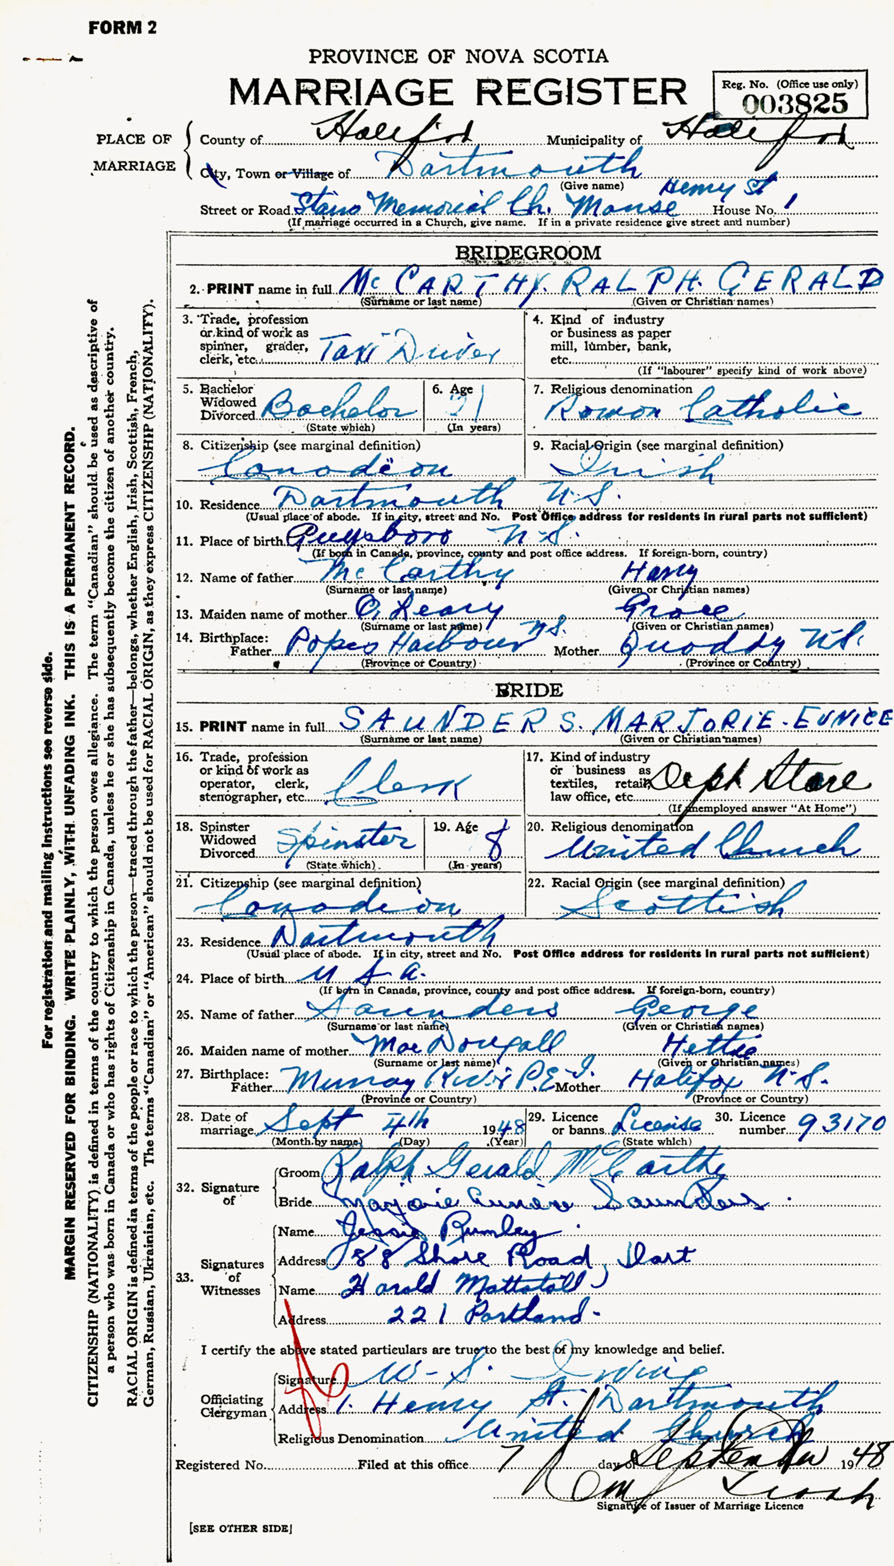 FORM 2
PROVINCE OF NOVA SCOTIA
MARRIAGE REGISTER
Reg. No. (Office use only)
003825
PLACE OF MARRIAGE
County of Halifax Municipality of Halifax
City, Town or Village of Dartmouth
(Give name) Henry St
Street or Road Stairs Memorial Ch. Manse House No. 1
(If marriage occurred in a Church, give name. If in a private residence give street and number)
BRIDEGROOM
2. PRINT name in full McCARTHY. RALPH. GERALD
(Surname or last name) (Given or Christian names)
3. Trade, profession or kind of work as spinner, grader, clerk, etc. Taxi Driver
4. Kind of industry or business as paper mill, lumber, bank, etc.
(If "labourer" specify kind of work above)
5. Bachelor Widowed Divorced Bachelor
(State which)
6. Age 21
(In years)
7. Religious denomination
Roman Catholic
8. Citizenship (see marginal definition)
Canadian
9. Racial Origin (see marginal definition)
Irish
10. Residence Dartmouth N.S.
(Usual place of abode. If in city, street and No. Post Office address for residents in rural parts not sufficient)
11. Place of birth Guysboro N.S.
(If born in Canada, province, county and post office address. If foreign-born, country)
12. Name of father McCarthy Harry
(Surname or last name) (Given or Christian names)
13. Maiden name of mother O'Leary Grace
(Surname or last name) (Given or Christian names)
14. Birthplace: Father Popes Harbour N.S. Mother Quoddy N.S.
(Province or Country) (Province or Country)
BRIDE
15. PRINT name in full SAUNDERS. MARJORIE. EUNICE
(Surname or last name) (Given or Christian names)
16. Trade, profession or kind of work as operator, clerk, stenographer, etc. Clerk
17. Kind of industry or business as textiles, retail law office, etc. Dept Store
(If unemployed answer "At Home")
18. Spinster Widowed Divorced Spinster
(State which)
19. Age 18
(In years)
20. Religious denomination
United Church
21. Citizenship (see marginal definition)
Canadian
22. Racial Origin (see marginal definition)
Scottish
23. Residence Dartmouth
(Usual place of abode. If in city, street and No. Post Office address for residents in rural parts not sufficient)
24. Place of birth U S A.
(If born in Canada, province, county and post office address. If foreign-born, country)
25. Name of father Saunders George
(Surname or last name) (Given or Christian names)
26. Maiden name of mother MacDougall Hettie
(Surname or last name) (Given or Christian names)
27. Birthplace: Father Murray River P.E.I. Mother Halifax N.S.
(Province or Country) (Province or Country)
28. Date of marriage Sept 4th 1948
(Month by name) (Day) (Year)
29. Licence or banns License
(State which)
30. Licence number 93170
32. Signature of
Groom Ralph Gerald McCarthy
Bride Marjorie Eunice Saunders
33. Signatures of Witnesses
Name Jessie Rumley
Address 88 Shore Road, Dart
Name Harold Mattatall
Address 221 Portland
I certify the above stated particulars are true to the best of my knowledge and belief.
Officiating Clergyman
Signature W. S. Irving
Address 1. Henry St. Dartmouth
Religious Denomination United Church
Registered No. Filed at this office 7 day of September 1948
Signature of Issuer of Marriage Licence
[SEE OTHER SIDE]
For registration and mailing instructions see reverse side.
MARGIN RESERVED FOR BINDING. WRITE PLAINLY, WITH UNFADING INK. THIS IS A PERMANENT RECORD.
CITIZENSHIP (NATIONALITY) is defined in terms of the country to which the person owes allegiance. The term "Canadian" should be used as descriptive of
a person who was born in Canada or who has rights of Citizenship in Canada, unless he or she has subsequently become the citizen of another country.
RACIAL ORIGIN is defined in terms of the people or race to which the person—traced through the father—belongs, whether English, Irish, Scottish, French,
German, Russian, Ukrainian, etc. The terms "Canadian" or "American" should not be used for RACIAL ORIGIN, as they express CITIZENSHIP (NATIONALITY).